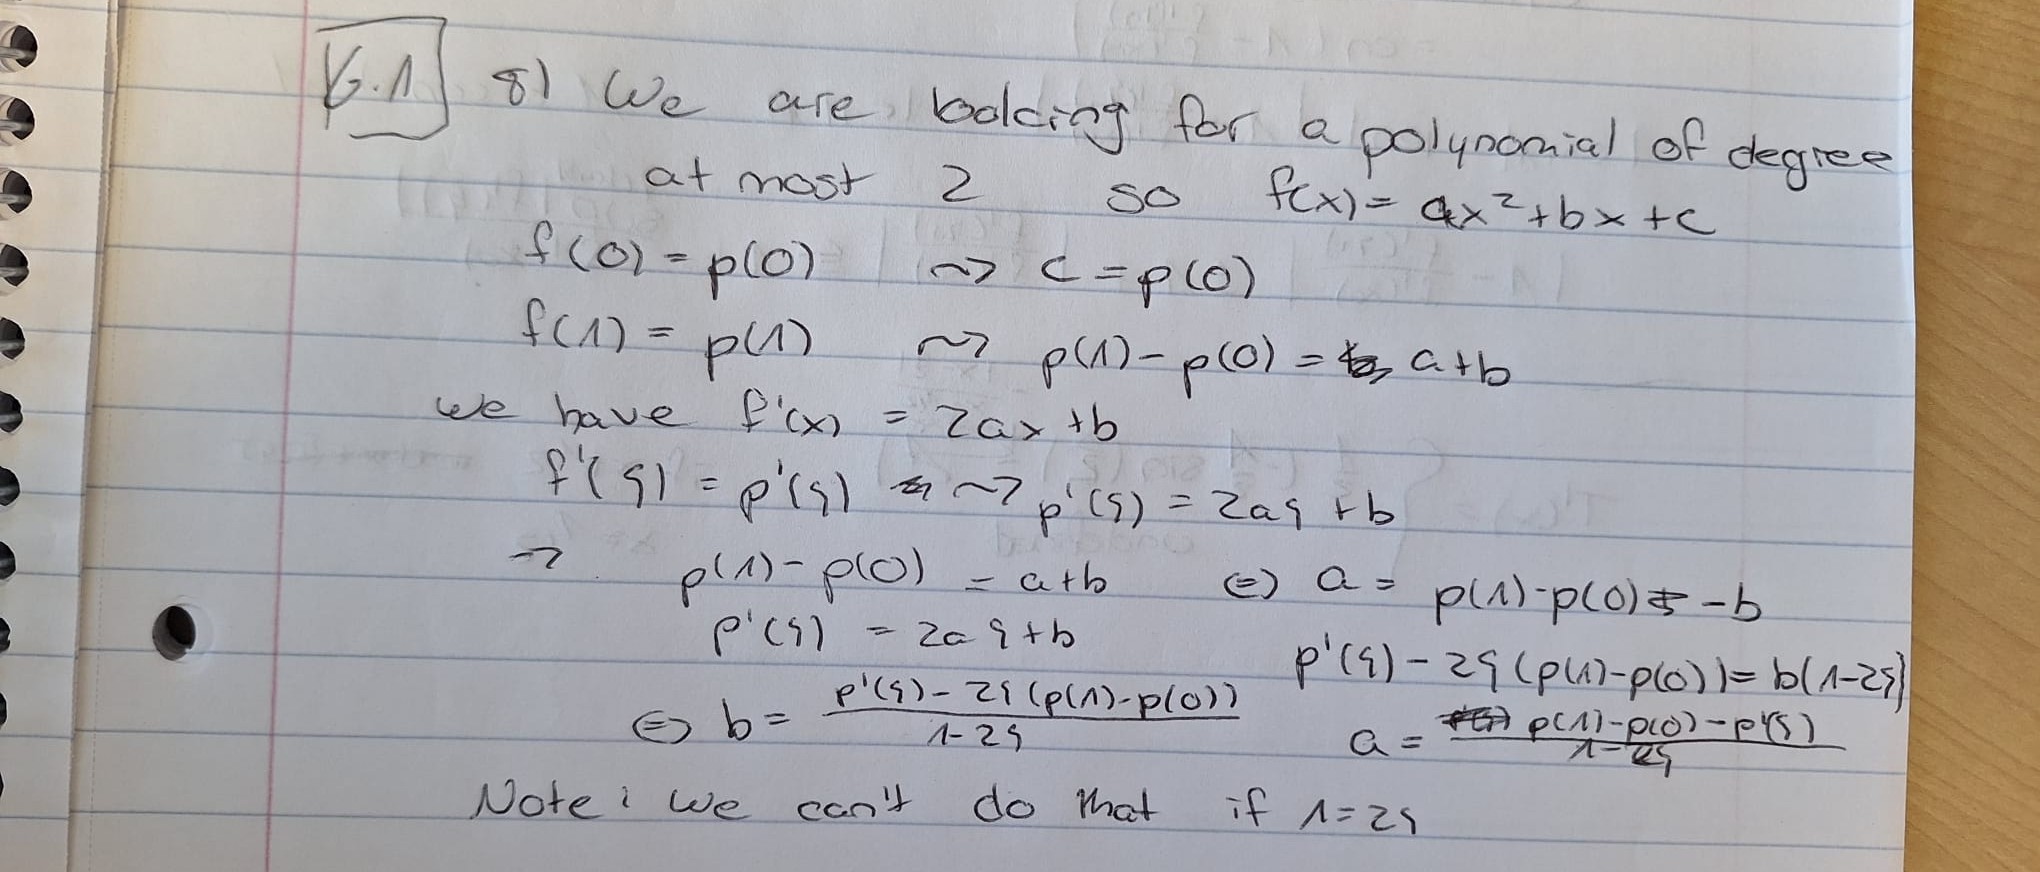 6.1 8) We are looking for a polynomial of degree
at most 2 so f(x) = ax²+bx+c
f(0) = p(0) ⇝ c = p(0)
f(1) = p(1) ⇝ p(1) - p(0) = a+b
we have f'(x) = 2ax+b
f'(ξ) = p'(ξ) ⇝ p'(ξ) = 2aξ+b
→ p(1) - p(0) = a+b ⇔ a = p(1)-p(0) -b
p'(ξ) = 2aξ+b p'(ξ) - 2ξ(p(1)-p(0)) = b(1-2ξ)
⇔ b = (p'(ξ) - 2ξ(p(1)-p(0)))/(1-2ξ) a = (p(1)-p(0)-p'(ξ))/(1-2ξ)
Note: we can't do that if 1=2ξ